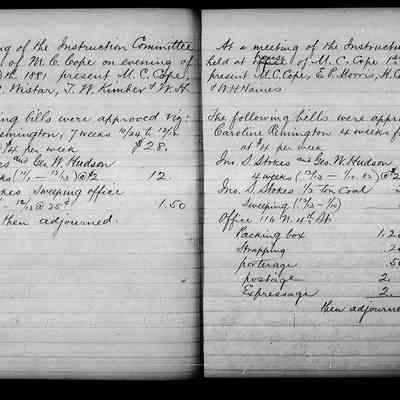 g of the Instruction Committee
of M. C. Cope on evening of
th 1881 present M. C. Cope,
. Wistar, T. W. Kimber & W. H.
ing bills were approved viz:
emington, 7 weeks 10/24 to 12/12
$4 per week $28.
es and Geo. W. Hudson
ks (11/1 – 12/13) @ $2 12.
okes sweeping office
– 12/13 @ 25¢ 1.50
then adjourned.
At a meeting of the Instructio
held at house of M. C. Cope 1st
present M. C. Cope, E. R. Morris, H. C
& W. H. Haines
The following bills were appr
Caroline Remington 4 weeks f
at $4 per week
Jno. S. Stokes and Geo. W. Hudson
4 weeks (12/13 – 1/10. 82) @ $2
Jno. S. Stokes 1/2 ton Coal
Sweeping (12/13 – 1/10)
Office 116 N. 4th St.
Packing box 1.20
Strapping 2
porterage 50
postage 2.
Expressage 2.
then adjourne